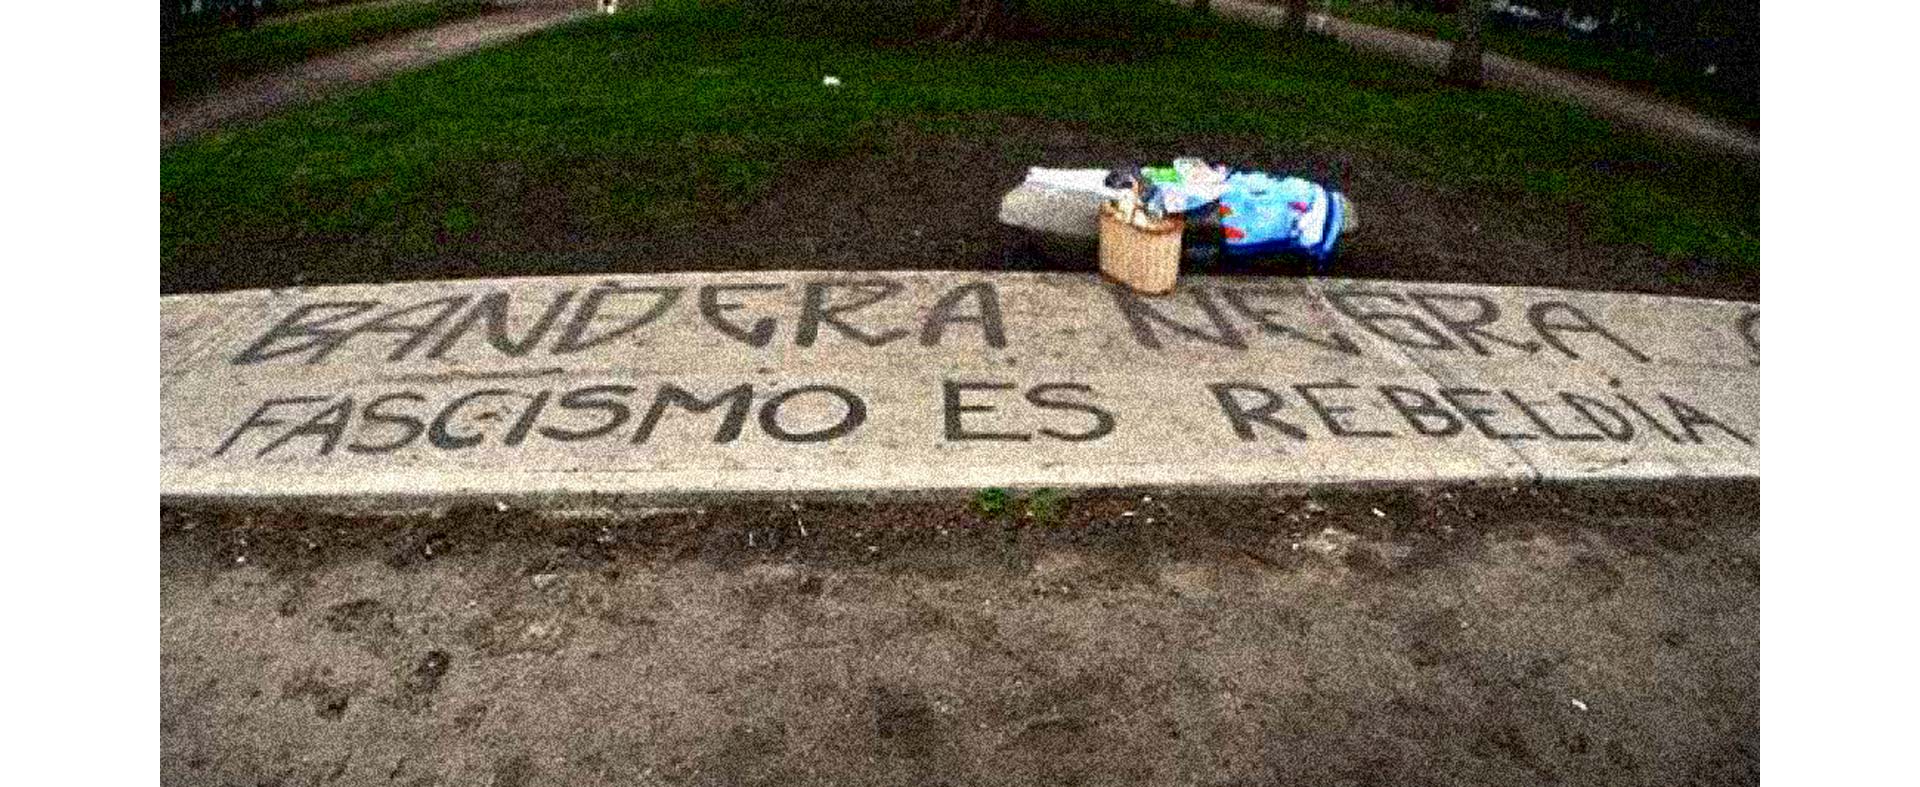 BANDERA NEGRA
FASCISMO ES REBELDÍA